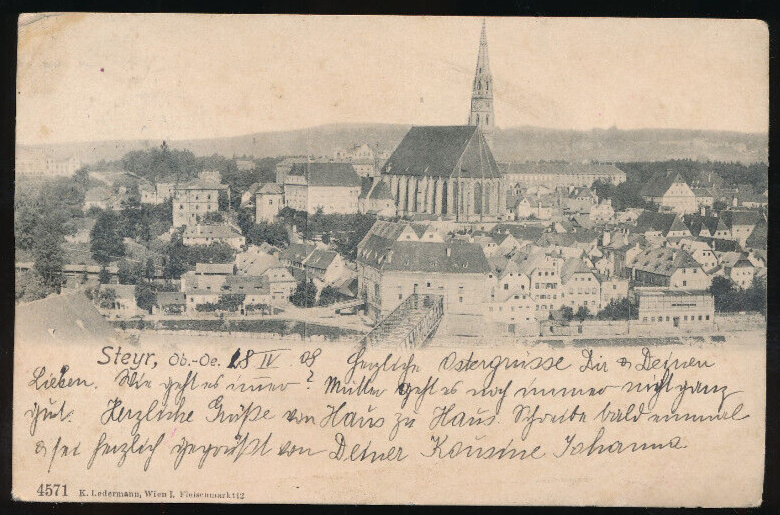 Steyr, Ob.-Oe. 18 IV 08 Herzliche Ostergrüsse Dir & Deinen
Lieben. Wie geht es immer? Mutter geht es noch immer nicht ganz
gut. Herzliche Grüße von Haus zu Haus. Schreibe bald einmal
& sei herzlich gegrüßt von Deiner Kousine Johanna
4571 K. Ledermann, Wien I. Fleischmarkt 12